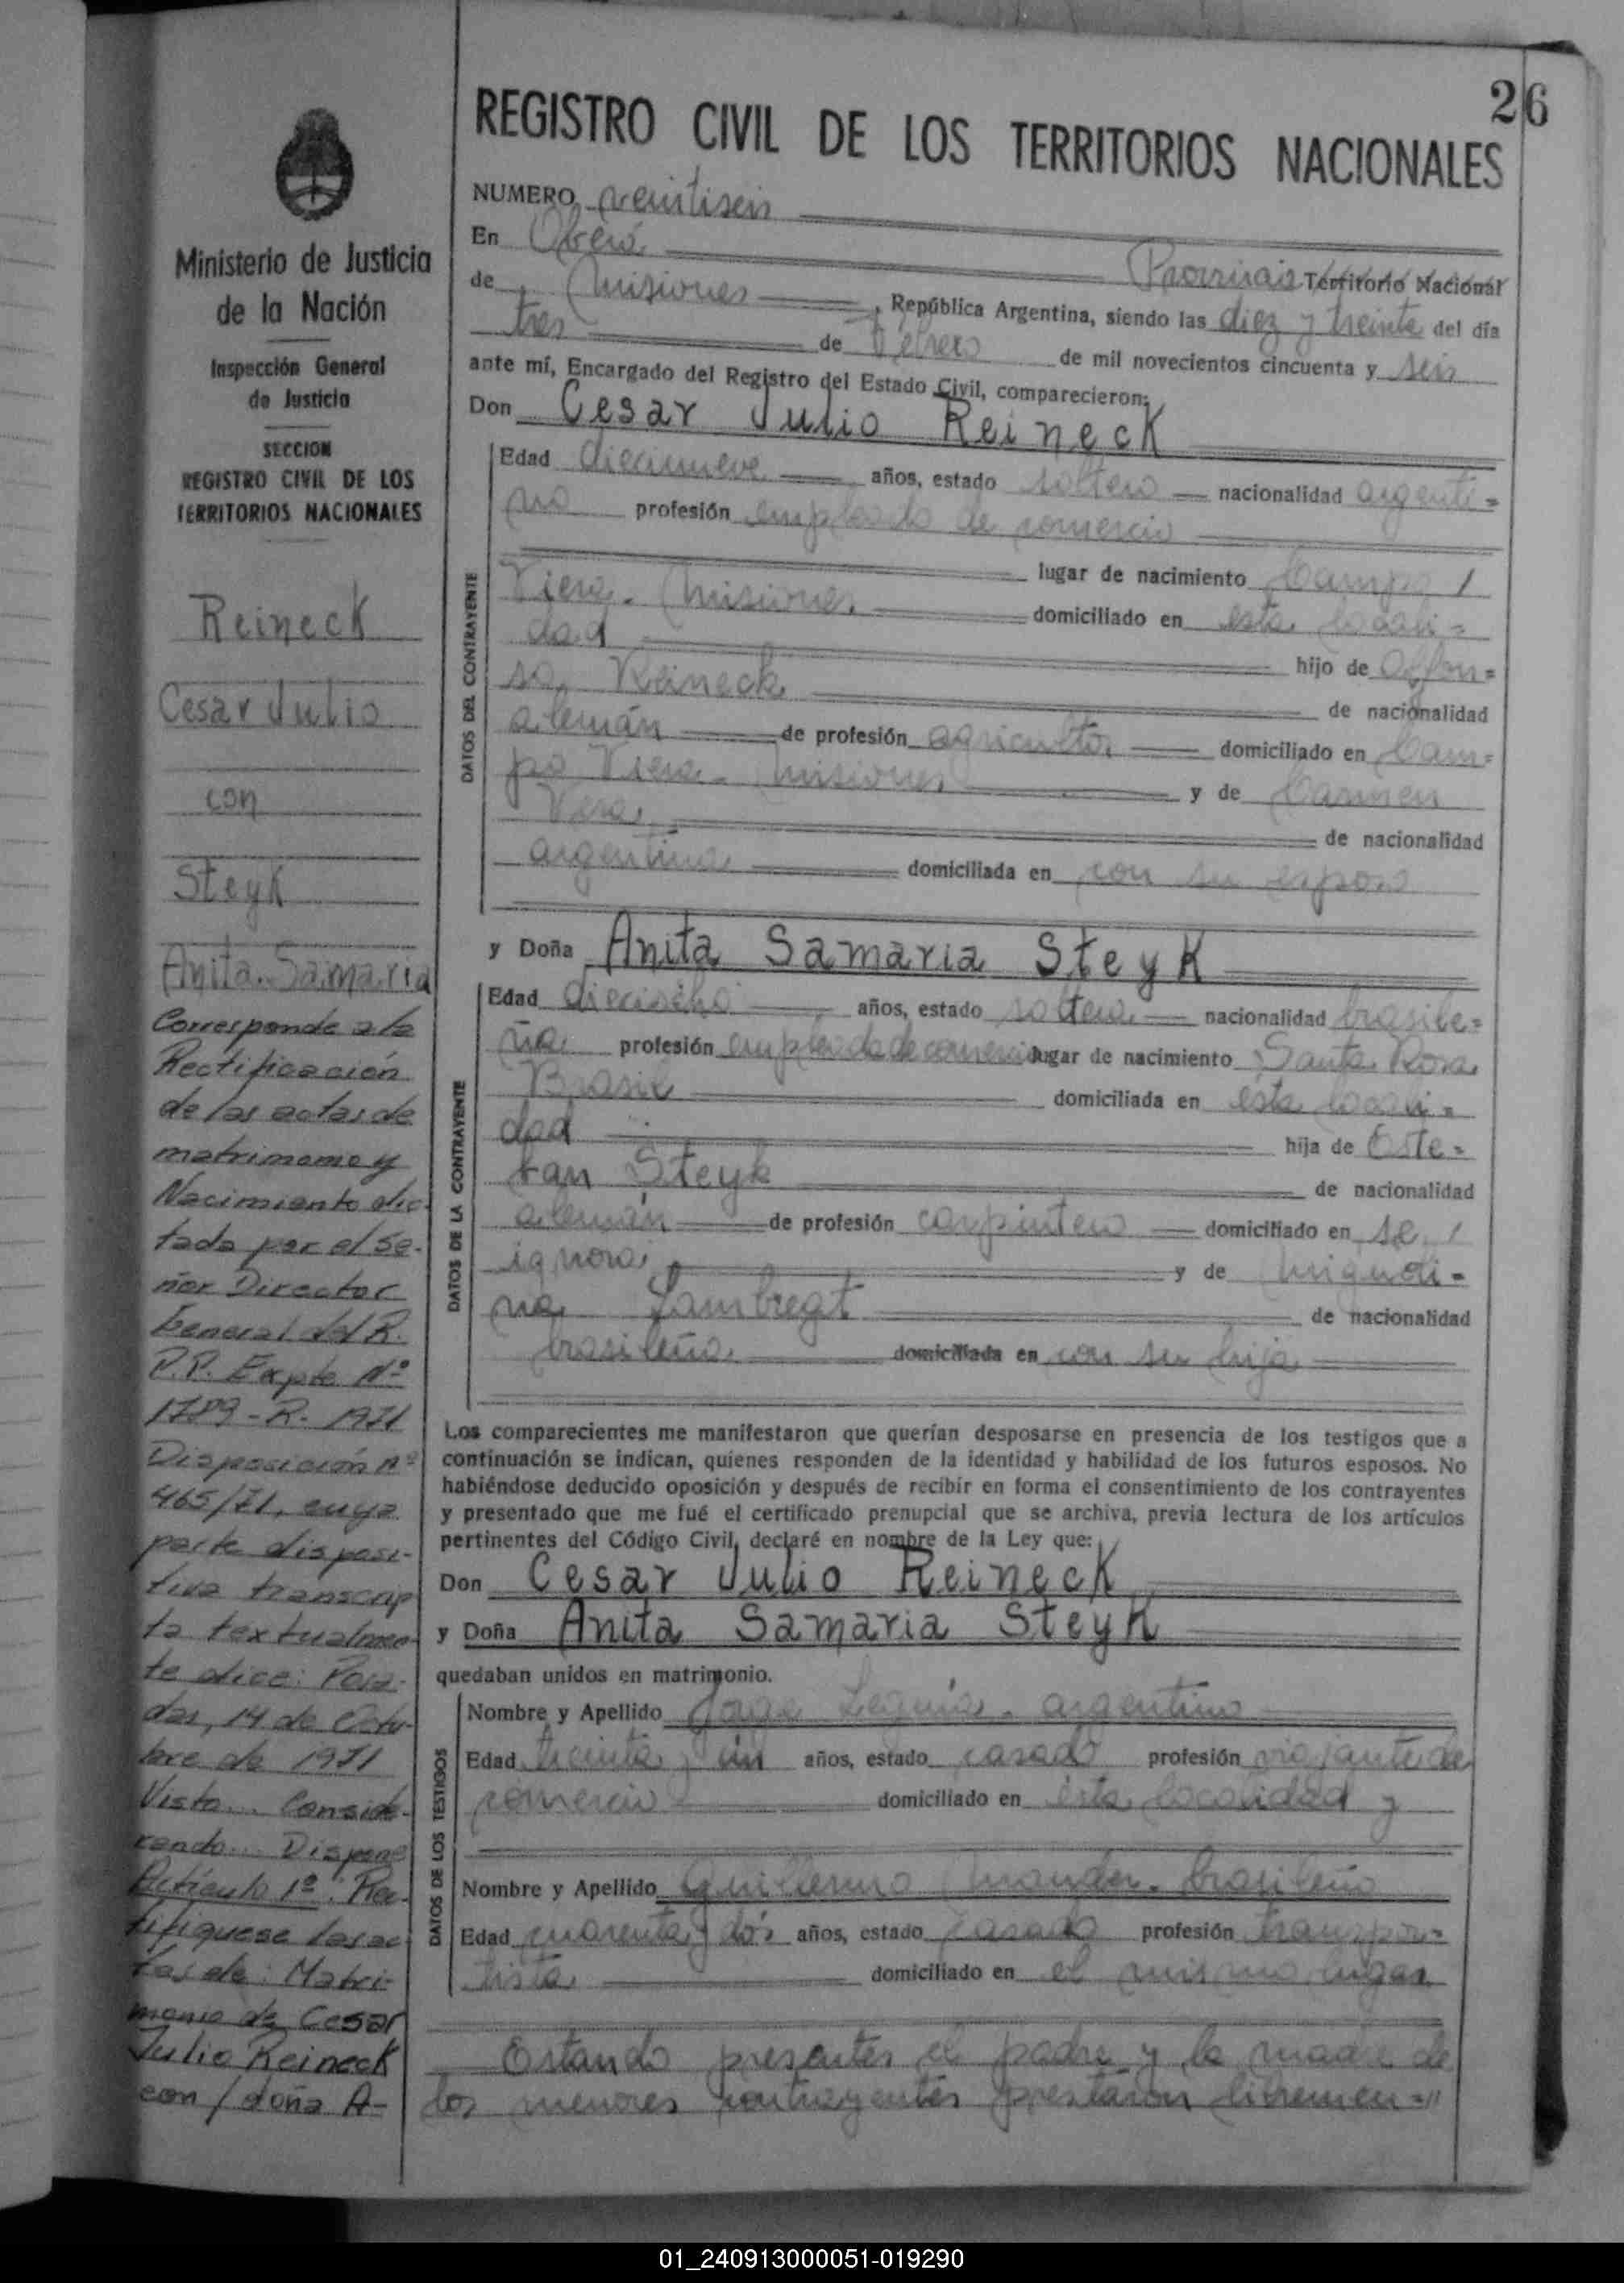 26
REGISTRO CIVIL DE LOS TERRITORIOS NACIONALES
NUMERO veintiseis
En Oberá
Provincia Territorio Nacional
de Misiones, República Argentina, siendo las diez y treinta del día
tres de Febrero de mil novecientos cincuenta y seis
ante mí, Encargado del Registro del Estado Civil, comparecieron:
Don Cesar Julio Reineck
DATOS DEL CONTRAYENTE
Edad diecinueve años, estado soltero nacionalidad argenti=
no profesión empleado de comercio
lugar de nacimiento Campo /
Viera. Misiones. domiciliado en esta locali=
dad hijo de Alfon=
so Reineck de nacionalidad
alemán de profesión agricultor domiciliado en Cam=
po Viera. Misiones y de Carmen
Vera de nacionalidad
argentina domiciliada en con su esposo
y Doña Anita Samaria Steyk
DATOS DE LA CONTRAYENTE
Edad dieciocho años, estado soltera nacionalidad brasile=
ña profesión empleada de comercio lugar de nacimiento Santa Rosa
Brasil domiciliada en ésta locali=
dad hija de Este=
ban Steyk de nacionalidad
alemán de profesión carpintero domiciliado en se /
ignora y de
na Lambregt de nacionalidad
brasileña domiciliada en con su hija
Los comparecientes me manifestaron que querían desposarse en presencia de los testigos que a
continuación se indican, quienes responden de la identidad y habilidad de los futuros esposos. No
habiéndose deducido oposición y después de recibir en forma el consentimiento de los contrayentes
y presentado que me fué el certificado prenupcial que se archiva, previa lectura de los artículos
pertinentes del Código Civil, declaré en nombre de la Ley que:
Don Cesar Julio Reineck
y Doña Anita Samaria Steyk
quedaban unidos en matrimonio.
DATOS DE LOS TESTIGOS
Nombre y Apellido Jorge Leguía. argentino
Edad treinta y un años, estado casado profesión viajante de
comercio domiciliado en ésta localidad y
Nombre y Apellido Guillermo brasileño
Edad cuarenta y dós años, estado casado profesión transpor=
tista domiciliado en el mismo lugar
Estando presentes el padre y la madre de
los menores contrayentes prestaron libremen="
Ministerio de Justicia
de la Nación
Inspección General
de Justicia
SECCION
REGISTRO CIVIL DE LOS
TERRITORIOS NACIONALES
Reineck
Cesar Julio
con
Steyk
Anita Samaria
Corresponde a la
Rectificación
de las actas de
matrimonio y
Nacimiento dic-
tada por el Se-
ñor Director
General del R.
P.P. Expte Nº
1789-R-1971
Disposición Nº
465/71, cuya
parte disposi-
tiva transcrip
ta textualmen-
te dice: Posa-
das, 14 de Octu-
bre de 1971
Visto... Conside-
rando... Dispone
Artículo 1º: Rec-
tifiquese las ac
tas de: Matri-
monio de Cesar
Julio Reineck
con / doña A-
01_240913000051-019290